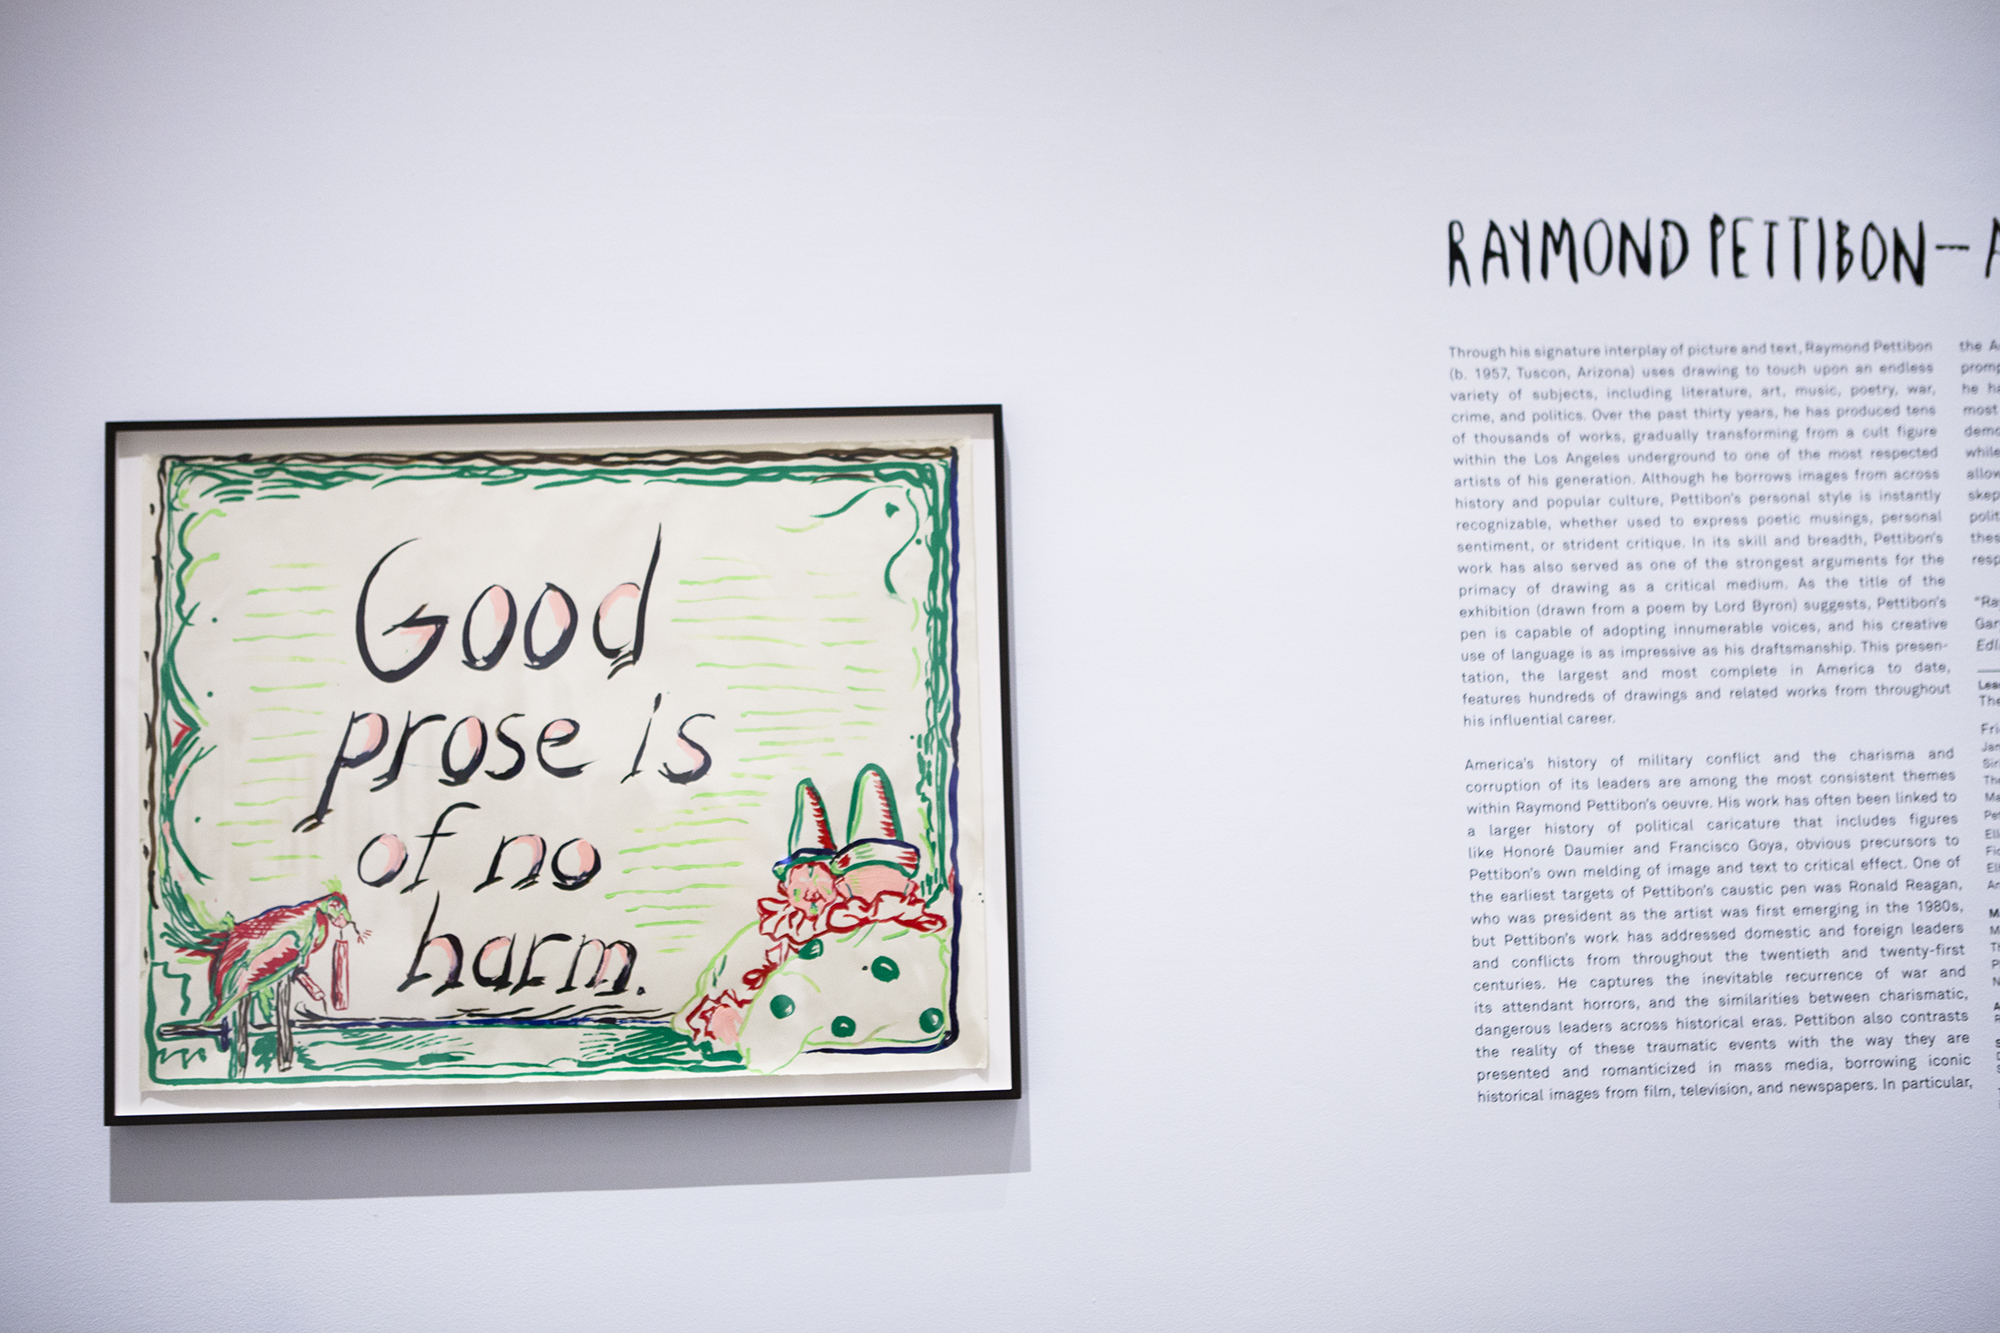 Good
prose is
of no
harm.
RAYMOND PETTIBON—
Through his signature interplay of picture and text, Raymond Pettibon
(b. 1957, Tuscon, Arizona) uses drawing to touch upon an endless
variety of subjects, including literature, art, music, poetry, war,
crime, and politics. Over the past thirty years, he has produced tens
of thousands of works, gradually transforming from a cult figure
within the Los Angeles underground to one of the most respected
artists of his generation. Although he borrows images from across
history and popular culture, Pettibon's personal style is instantly
recognizable, whether used to express poetic musings, personal
sentiment, or strident critique. In its skill and breadth, Pettibon's
work has also served as one of the strongest arguments for the
primacy of drawing as a critical medium. As the title of the
exhibition (drawn from a poem by Lord Byron) suggests, Pettibon's
pen is capable of adopting innumerable voices, and his creative
use of language is as impressive as his draftsmanship. This presen-
tation, the largest and most complete in America to date,
features hundreds of drawings and related works from throughout
his influential career.
America's history of military conflict and the charisma and
corruption of its leaders are among the most consistent themes
within Raymond Pettibon's oeuvre. His work has often been linked to
a larger history of political caricature that includes figures
like Honoré Daumier and Francisco Goya, obvious precursors to
Pettibon's own melding of image and text to critical effect. One of
the earliest targets of Pettibon's caustic pen was Ronald Reagan,
who was president as the artist was first emerging in the 1980s,
but Pettibon's work has addressed domestic and foreign leaders
and conflicts from throughout the twentieth and twenty-first
centuries. He captures the inevitable recurrence of war and
its attendant horrors, and the similarities between charismatic,
dangerous leaders across historical eras. Pettibon also contrasts
the reality of these traumatic events with the way they are
presented and romanticized in mass media, borrowing iconic
historical images from film, television, and newspapers. In particular,
the
he
most
while